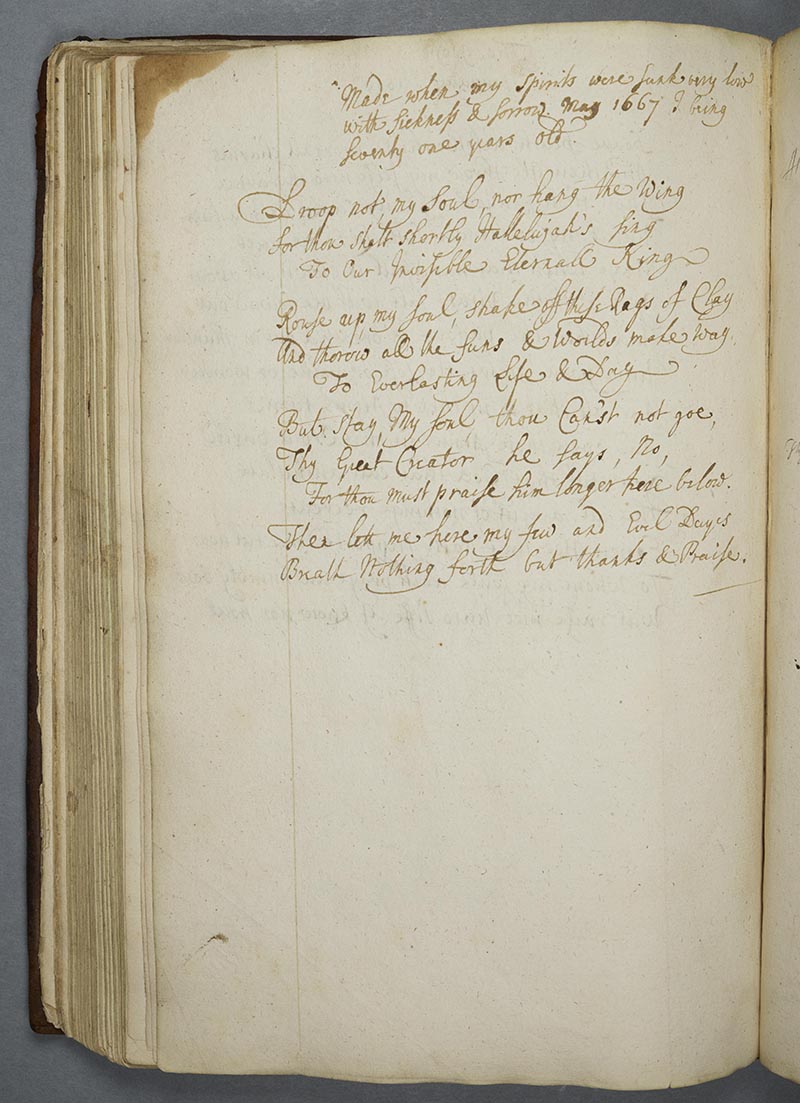 Made when my spirits were sunk very low
with sickness & sorrow May 1667 I being
seventy one years old.
Droop not, my Soul, nor hang the Wing
for thou shalt shortly Hallelujah's sing
To Our Invisible Eternall King
Rouse up, my Soul, shake off these Rags of Clay
And thorow all the suns & Worlds make way,
To Everlasting Life & Day
But stay, My soul thou Can'st not goe,
Thy Great Creator he says, No,
For thou must praise him longer here below.
Then lett me here my few and Evil Dayes
Breath Nothing forth but thanks & Praise.